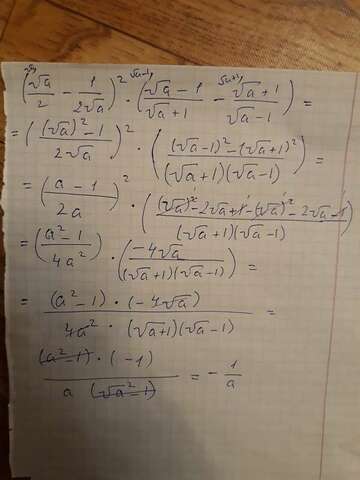 (√a/2 - 1/2√a)² · (√a - 1/√a + 1 - √a + 1/√a - 1) =
= ((√a)² - 1/2√a)² · ((√a-1)² - (√a+1)²/(√a+1)(√a-1)) =
= (a - 1/2a)² · ((√a)² - 2√a + 1 - (√a)² - 2√a - 1/(√a+1)(√a-1))
= (a² - 1/4a²) · (-4√a/(√a+1)(√a-1)) =
= (a² - 1) · (-4√a)/4a² · (√a+1)(√a-1) =
(a² - 1) · (-1)/a (√a² - 1) = - 1/a